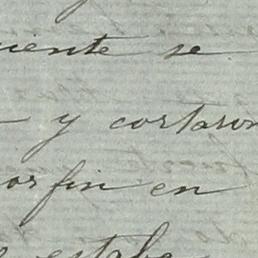 ciente se
y cortaron
por fin en
estaba